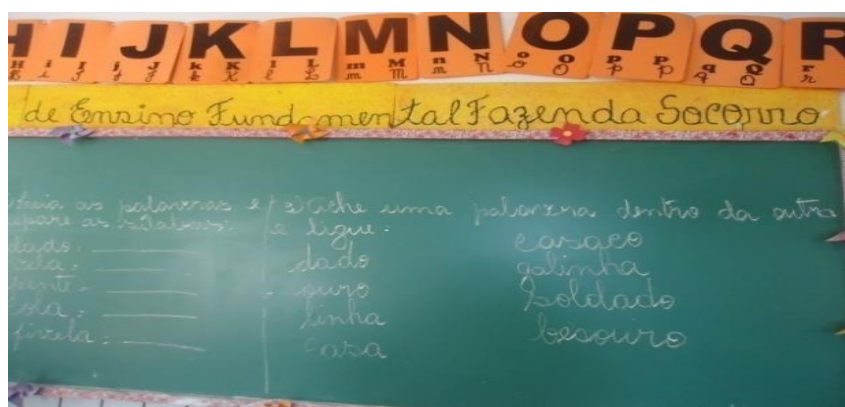 H I J K L M N O P Q R
H i I j J k K l L m M n N o O p P q Q r
de Ensino Fundamental Fazenda Socorro
Leia as palavras e
separe as sílabas:
dado:
pente:
cola:
2) Ache uma palavra dentro da outra
e ligue:
dado
ouro
linha
casa
casaco
galinha
Soldado
besouro